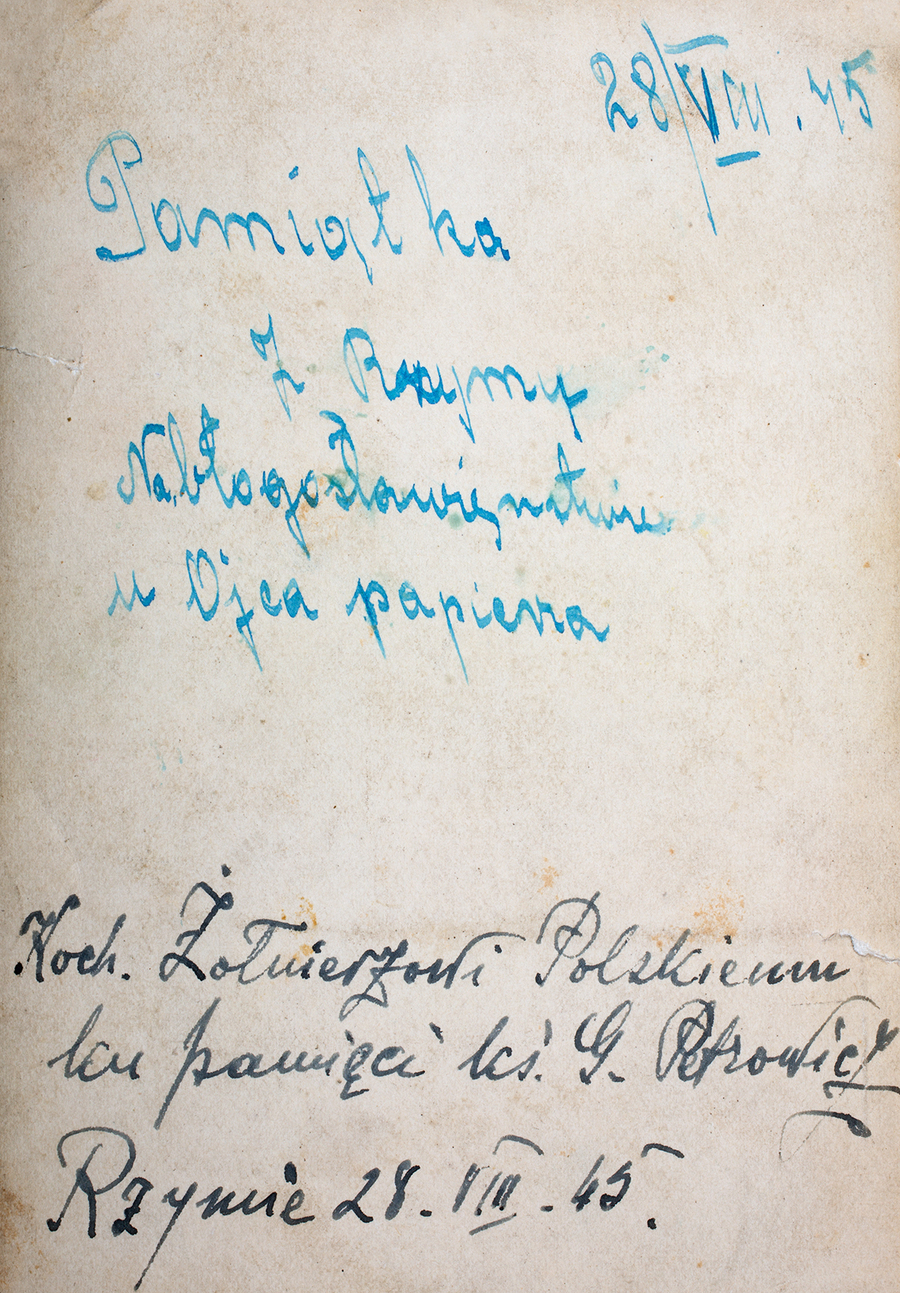 28/VIII.45
Pamiątka
Z Rzymy
Na błogosławięnstwie
u Ojca papierza
Koch. Żołnierzowi Polskiemu
ku pamięci ks. G. Petrowicz
Rzymie 28. VIII. 45.